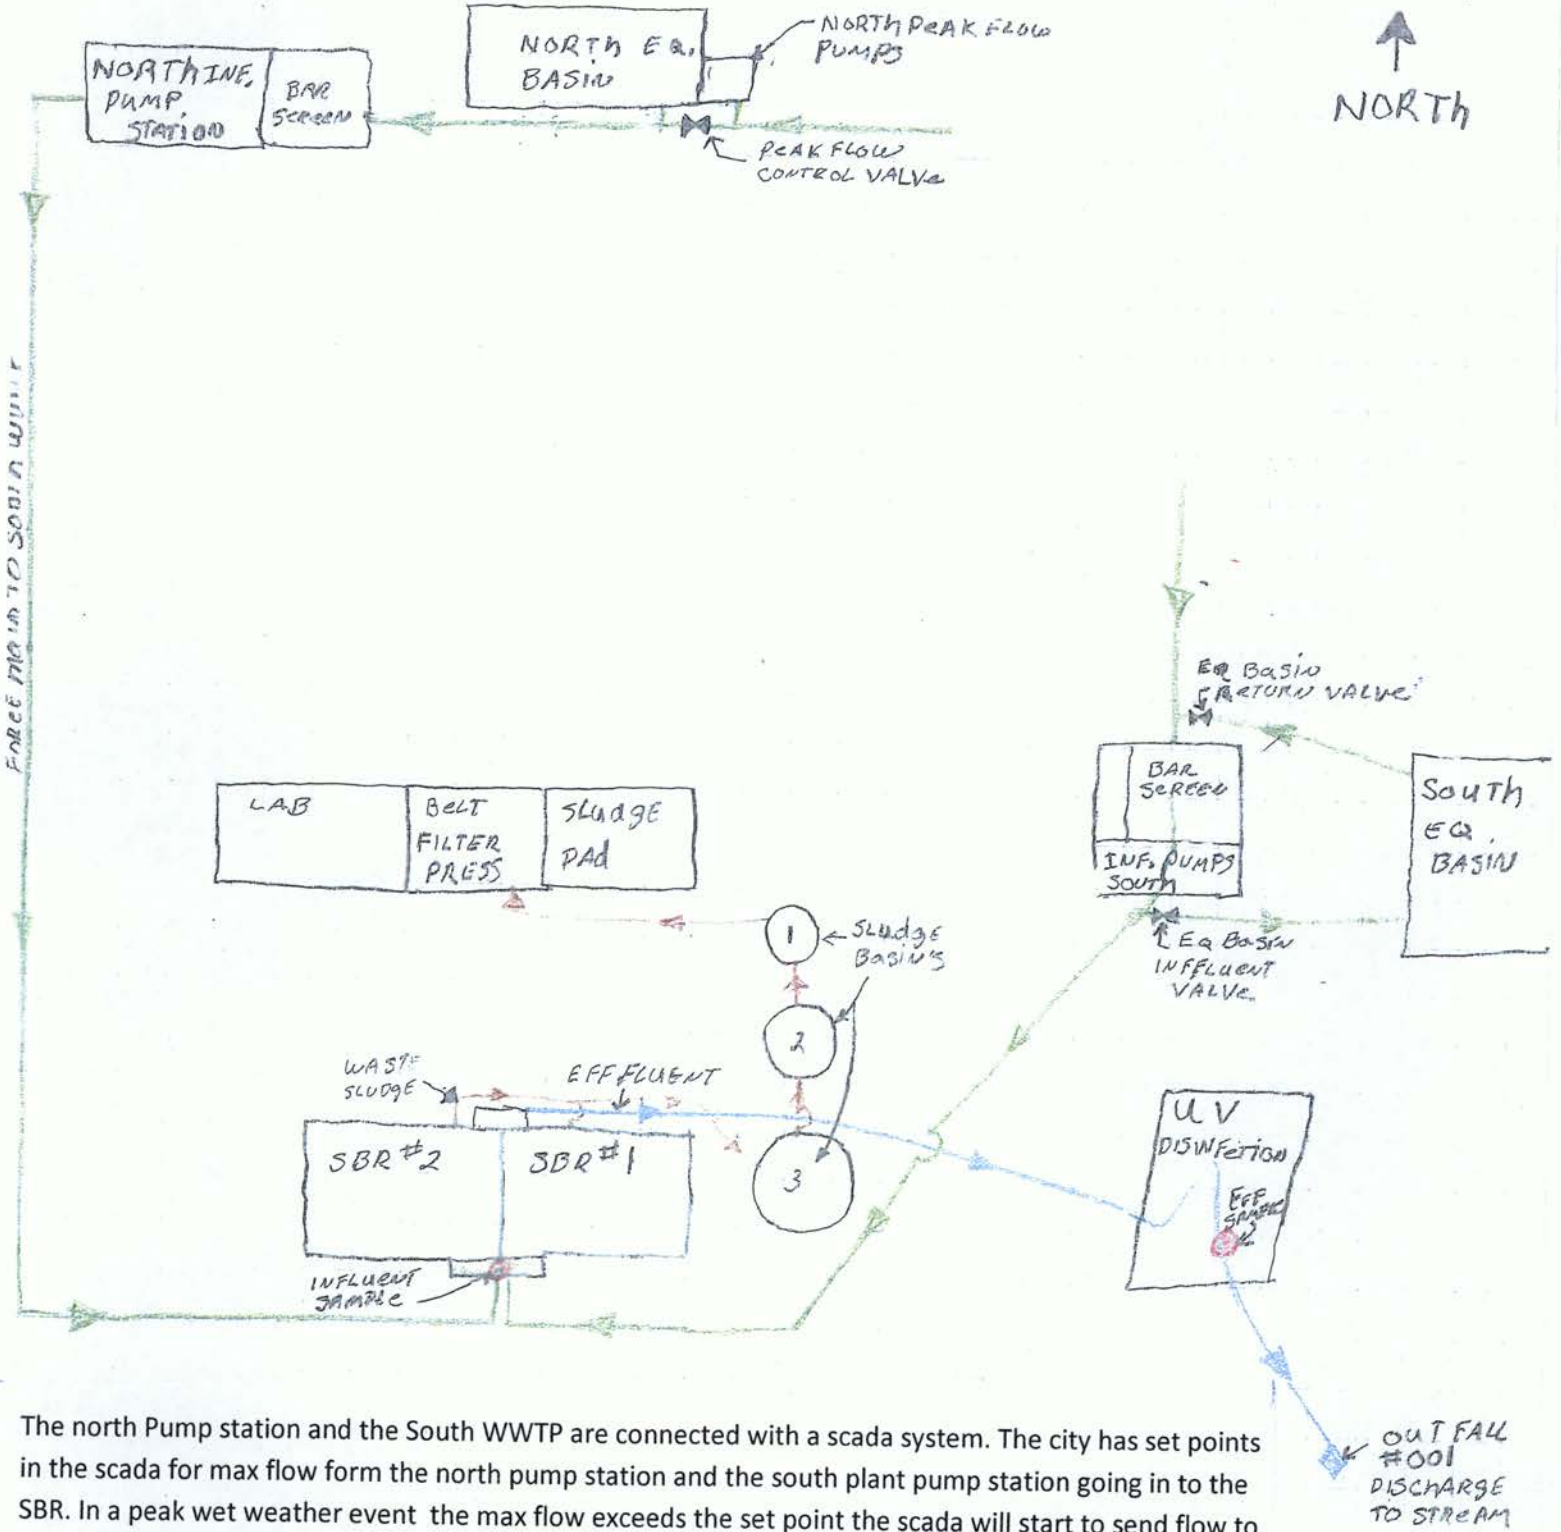 NORTH EQ.
BASIN
NORTH PEAK FLOW
PUMPS
NORTH INF.
PUMP
STATION
BAR
SCREEN
PEAK FLOW
CONTROL VALVE
NORTH
FORCE MAIN TO SOUTH WWTP
EQ BASIN
RETURN VALVE
BAR
SCREEN
INF. PUMPS
SOUTH
SOUTH
EQ.
BASIN
EQ BASIN
INFFLUENT
VALVE
LAB
BELT
FILTER
PRESS
SLUDGE
PAD
1
SLUDGE
BASIN'S
2
3
WASTE
SLUDGE
EFFFLUENT
SBR #2
SBR #1
INFLUENT
SAMPLE
UV
DISINFETION
EFF
SAMPLE
OUTFALL
#001
DISCHARGE
TO STREAM
The north Pump station and the South WWTP are connected with a scada system. The city has set points
in the scada for max flow form the north pump station and the south plant pump station going in to the
SBR. In a peak wet weather event the max flow exceeds the set point the scada will start to send flow to